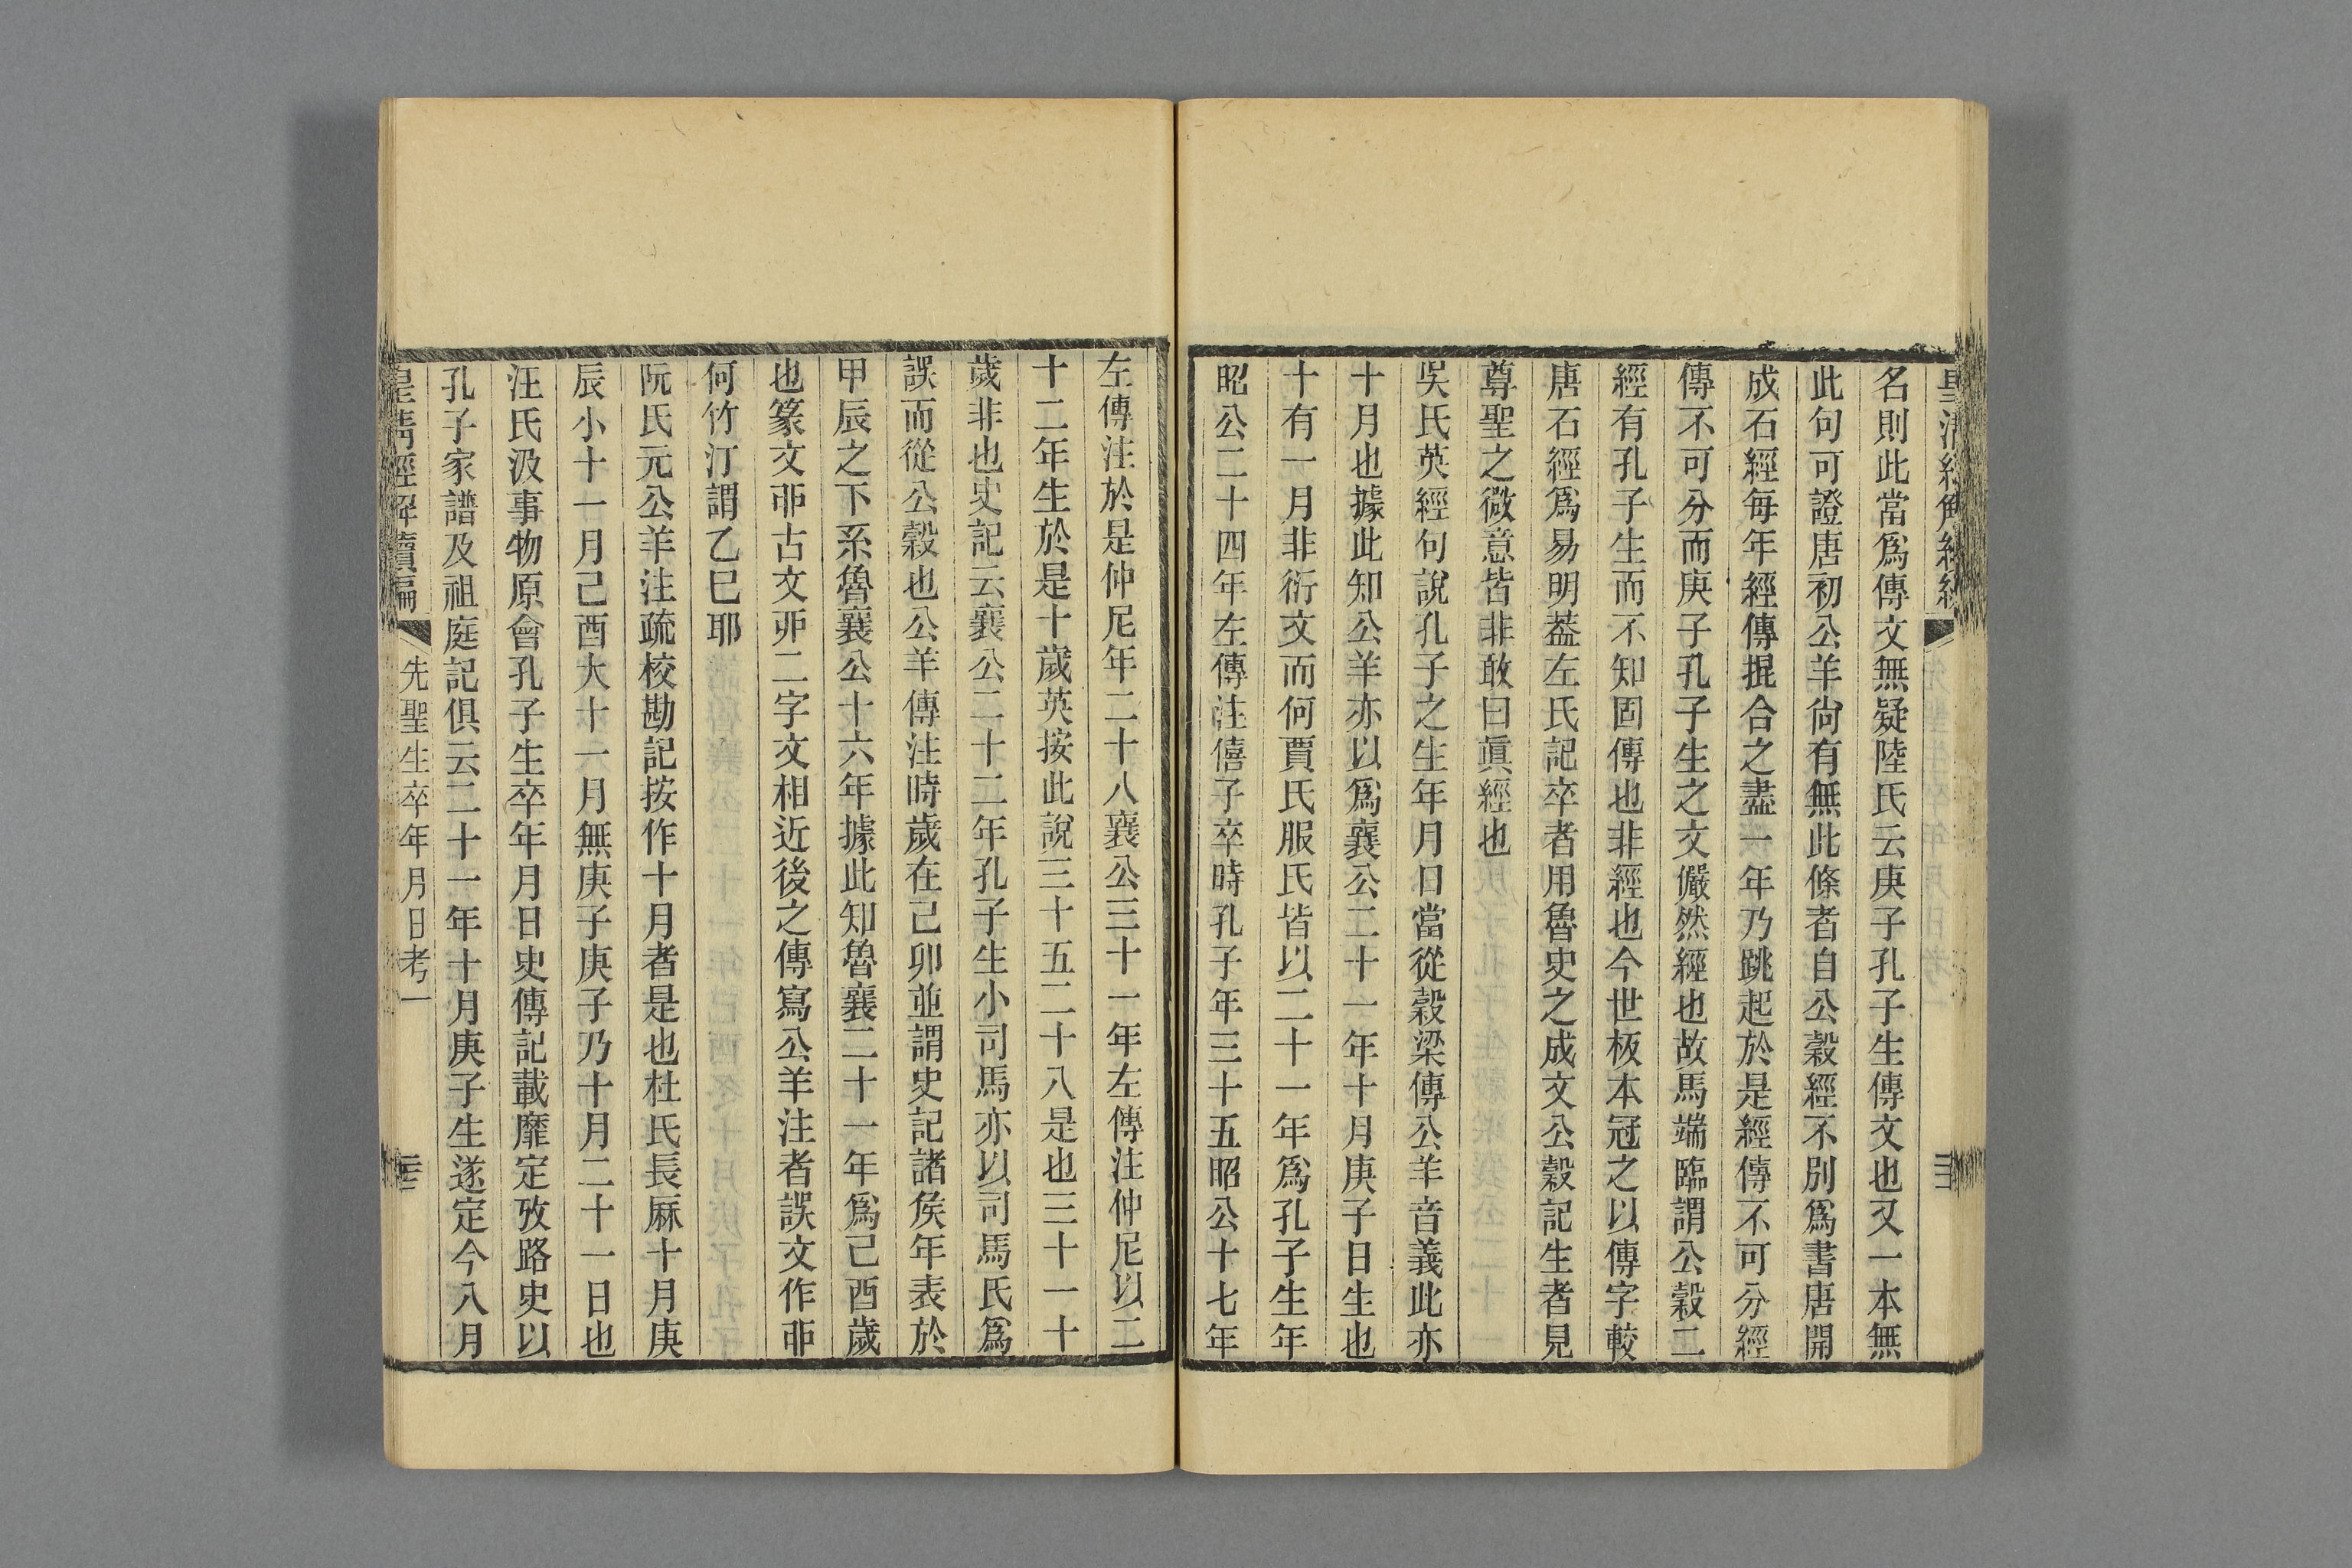 名則此當爲傳文無疑陸氏云庚子孔子生傳文也又一本無
此句可證唐初公羊尙有無此條者自公穀經不別爲書唐開
成石經每年經傳掍合之盡一年乃跳起於是經傳不可分經
傳不可分而庚子孔子生之文儼然經也故馬端臨謂公穀二
經有孔子生而不知固傳也非經也今世板本冠之以傳字較
唐石經爲易明葢左氏記卒者用魯史之成文公穀記生者見
尊聖之微意皆非敢曰眞經也
吳氏英經句說孔子之生年月日當從穀梁傳公羊音義此亦
十月也據此知公羊亦以爲襄公二十一年十月庚子日生也
十有一月非衍文而何賈氏服氏皆以二十一年爲孔子生年
昭公二十四年左傳注僖子卒時孔子年三十五昭公十七年
左傳注於是仲尼年二十八襄公三十一年左傳注仲尼以二
十二年生於是十歲英按此說三十五二十八是也三十一十
歲非也史記云襄公二十二年孔子生小司馬亦以司馬氏爲
誤而從公穀也公羊傳注時歲在己卯並謂史記諸侯年表於
甲辰之下系魯襄公十六年據此知魯襄二十一年爲己酉歲
也篆文丣古文丣二字文相近後之傳寫公羊注者誤文作丣
何竹汀謂乙巳耶
阮氏元公羊注疏校勘記按作十月者是也杜氏長厤十月庚
辰小十一月己酉大十一月無庚子庚子乃十月二十一日也
汪氏汲事物原會孔子生卒年月日史傳記載靡定攷路史以
孔子家譜及祖庭記俱云二十一年十月庚子生遂定今八月
皇清經解續編 先聖生卒年月日考一